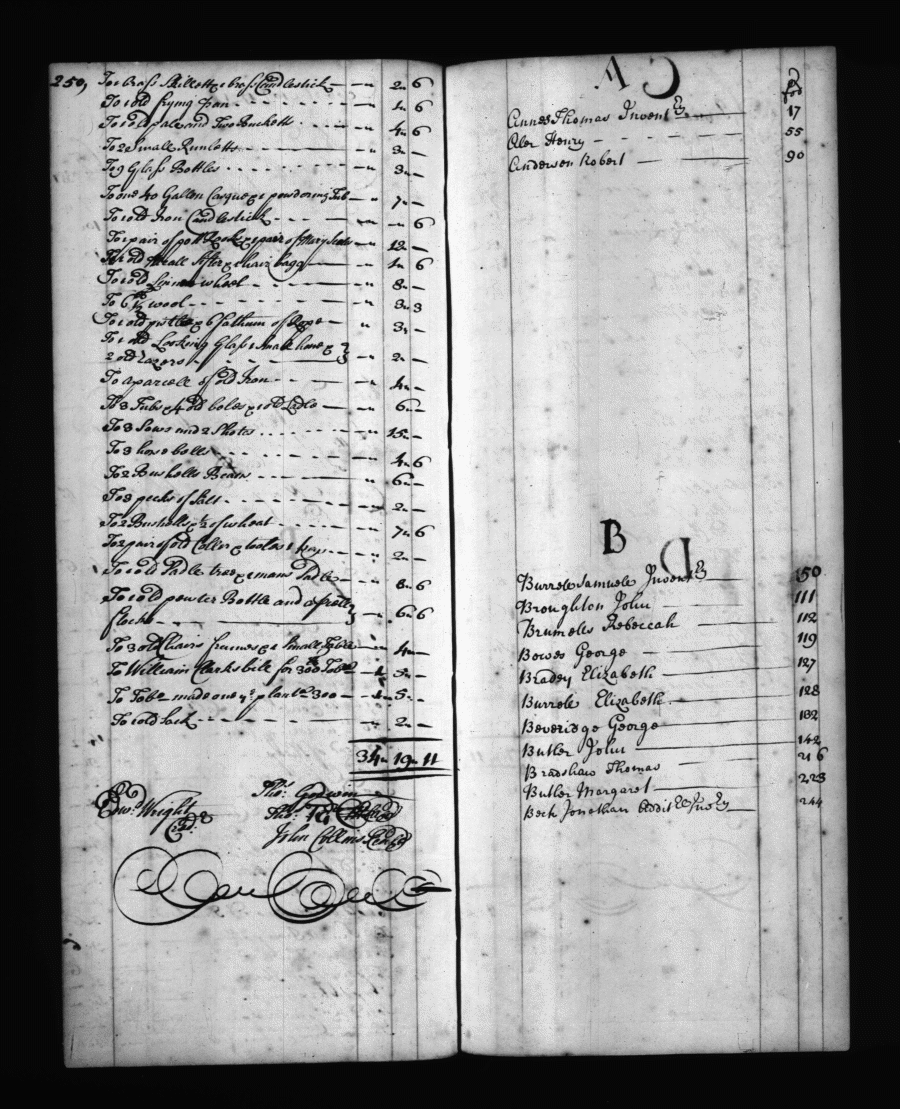 250,
To 1 Brass Skillett & 1 brass Candlestick — „ 2 „ 6
To 1 old frying pan — „ 1 „ 6
To 1 old pale and Two Bucketts — „ 4 „ 6
To 2 Small Runletts — „ 3 „ —
To 9 Glass Bottles — „ 3 „ —
To one 40 Gallon Casque & 1 powdering Tub — „ 7 „ —
To 1 old Iron Candlestick — „ — „ 6
To 1 pair of pott hooks & 1 pair of — „ 12 „ —
To 1 old Meall Sifter & 1 hair bagg — „ 1 „ 6
To 1 old Linnen wheel — „ 8 „ —
To 6 wool — „ 3 „ 3
To 1 old & 6 fathum of Rope — „ 3 „
To 1 old Looking Glass 1 Small hone &
2 old Razors — „ 2 „ —
To a parcell of old Iron — „ 4 „ —
To 3 Tubs & 4 old boles & 1 old Ladle — „ 6 „ —
To 3 Sows and 2 Shotes — 15 „ —
To 3 horse bells — „ 4 „ 6
To 2 Bushells Beans — „ 6 „ —
To 3 pecks of Salt — „ 2 „ —
To 2 Bushells & 1/2 of wheat — „ 7 „ 6
To 2 pair of old — „ 2 „ —
To 1 old Sadle tree & 1 mans Sadle — „ 8 „ 6
To 1 old pewter Bottle and a
flocke — „ 6 „ 6
To 3 old Chairs frames & 1 Small Table — „ 4 „ —
To William Clarks bill for 300 Tobo — 5 „ —
To Tobo made one ye plantn 300 — 5 „ —
To 1 old Sack — „ 2 „ —
34 „ 19 „ 11
Edwd. Wright
Credr
Thos. Godwin
Thos.
John Collins
A
C
fo
Annes Thomas Inventry — 17
Oler Henry — 55
Anderson Robert — 90
B
D
Burrele Samuele Inventry — 50
Broughton John — 111
Brumeles Rebeccah — 112
Bowes George — 119
Bradey Elizabeth — 127
Burrole Elizabeth — 128
Beveridge George — 132
Butler John — 142
Bradshaw Thomas — 216
Butler Margaret — 223
Beck Jonathan Addit Invry — 244